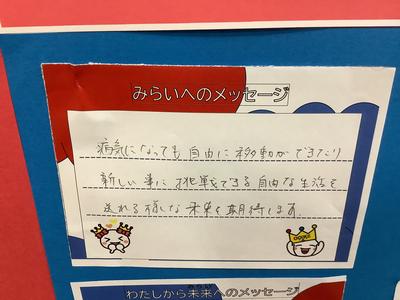 みらいへのメッセージ
病気になっても自由に移動ができたり
新しい事に挑戦できる自由な生活を
送れる様な未来を期待します。
わたしから未来へのメッセージ